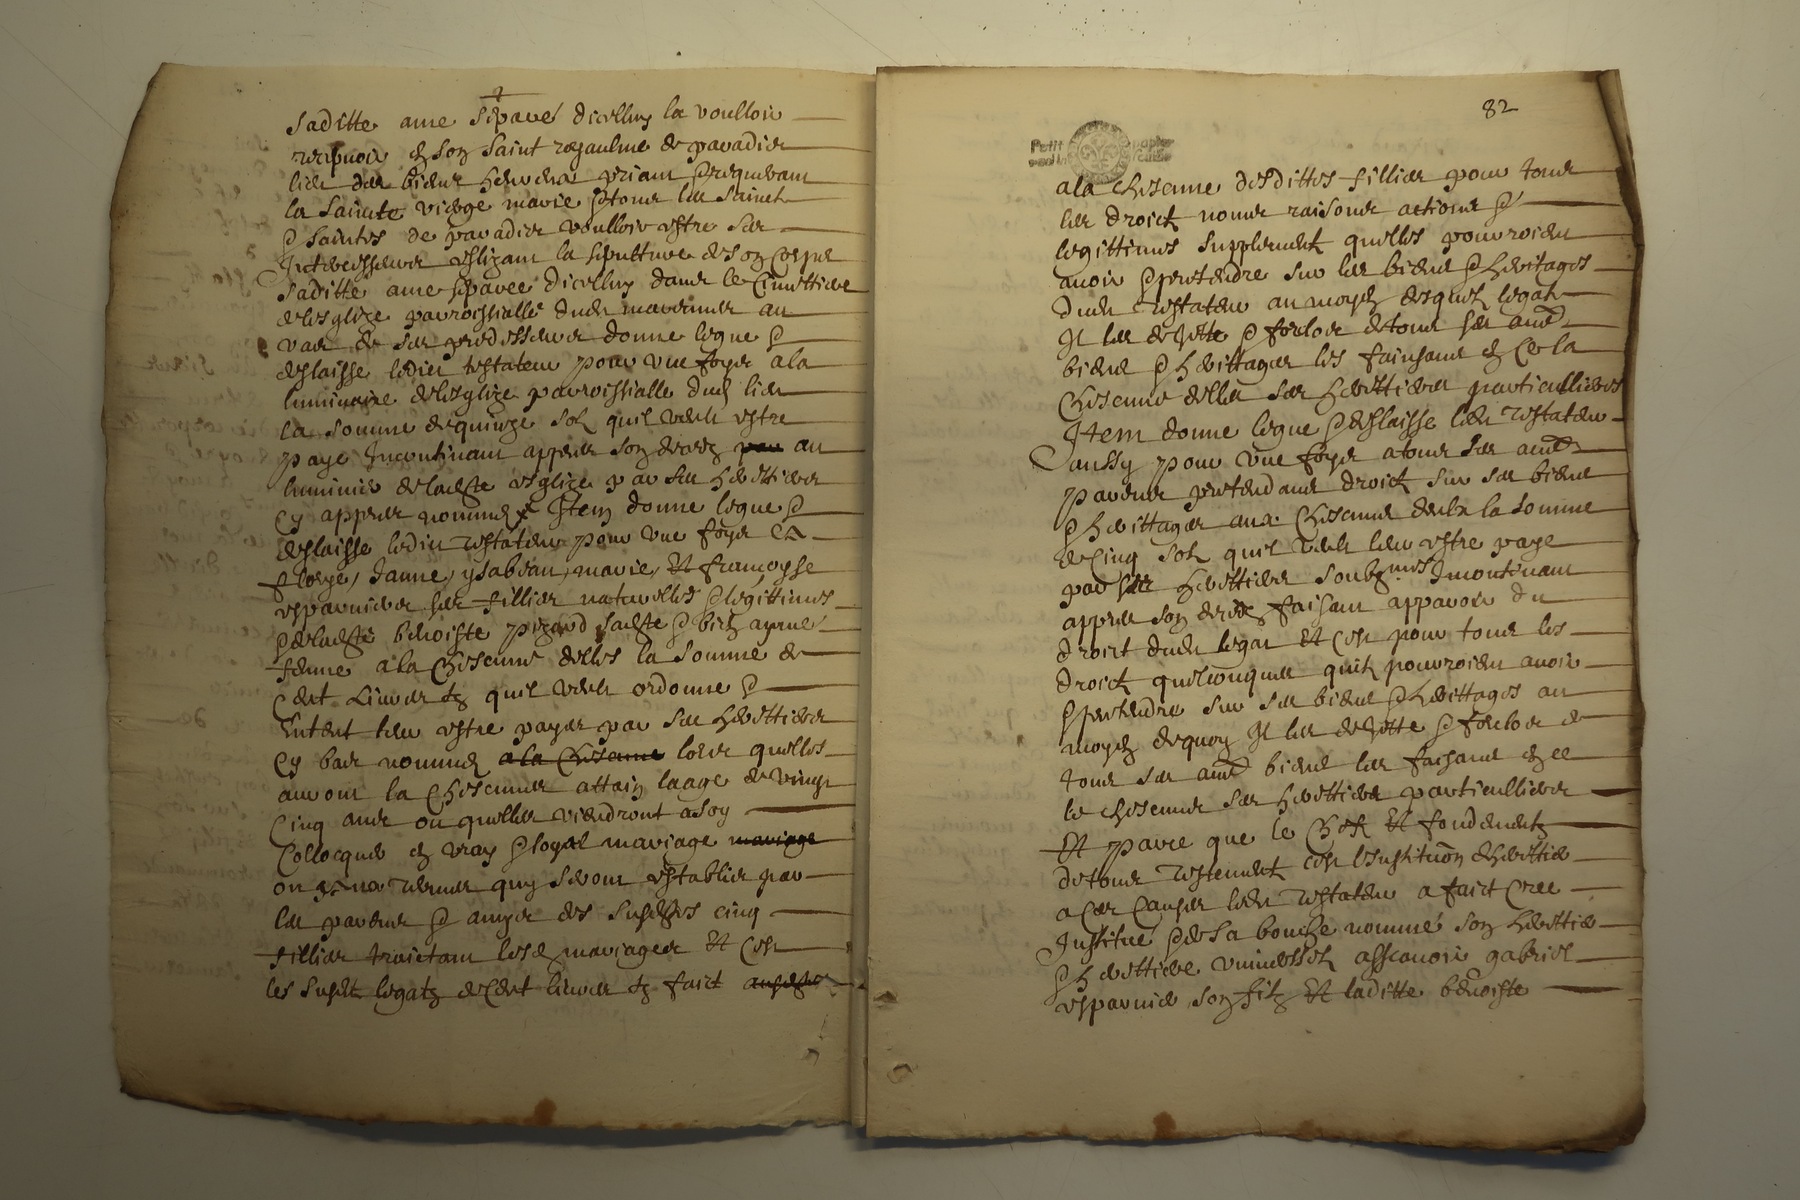 saditte ame sepavé dicelluy la voulloir
recepvoir en son saint royaulme de paradis
lieu des bienheureux priant & requerant
la sainte vierge marie & tous les saincts
& saintes de paradis voulloir estre ses
Intercesseurs eslizant la sepulture de son corps
saditte ame sepavee dicelluy dans le cimettiere
de lesglize parroissialle dudit
vas de ses predecesseurs donne legue &
deslaisse ledict testateur pour une foys a la
luminaire de lesglize parroissialle dud lieu
la somme de quinze solz quil veult estre
paye Incontinant appres son deces par au
luminier de laditte esglize par ses herittiers
cy appres nommes Item donne legue &
deslaisse ledict testateur pour une foys a
, Janne, ysabeau, marie, Et francoyse
esparvier ses fillies naturelles & legittimes
& de laditte benoiste sadte & bien aymee
femme a la chescune delles la somme de
cent Livres tz quil veult ordonne &
Entent leur estre payes par ses herittiers
cy bas nommes a la chescune lors quelles
auront la chescune attain laage de vingt
cinq ans ou quelles viendront a soy
collocquer en vray & loyal mariage mariage
ou termes quy seront establis par
les parens & amys des susdtes cinq
fillies traictant lesd mariages Et cest
les susdt legatz de cent livres tz faict
82
Petit papier
a la chescune desdittes fillies pour tous
les droictz noms raisons actions &
legittimes supplementz quelles pourroient
avoir & pretendre sur les biens & heritages
dudt testateur au moyen desquelz legatz
Il les dejette & forclos de tous ses aud
biens & herittages les faisant en cela
chescune delles ses herittieres particullieres
Item donne legue & deslaisse ledt testateur
aussy pour une foys a tous ses autres
parens pretendans droict sur ses biens
& herittages aux chescuns deulx la somme
de cinq solz quil veult leur estre paye
par ses herittiers soubznmes Incontinant
appres son deces faisant apparoir du
droict dudt legat Et cest pour tous les
droictz quelconques quilz pourroient avoir
& pretendre sur ses biens & herittages au
moyen de quoy Il les dejette & forclos de
tous ses aud biens les faisant en ce
le chescuns ses herittiers particulliers
Et parce que le chef Et fondement
de tous testement est lInstituon dherittier
a ces causes ledt testateur a faict cree
Institué & de sa bouche nommé son herittier
& herittiere universelz asscavoir gabriel
esparvier son filz Et laditte benoiste